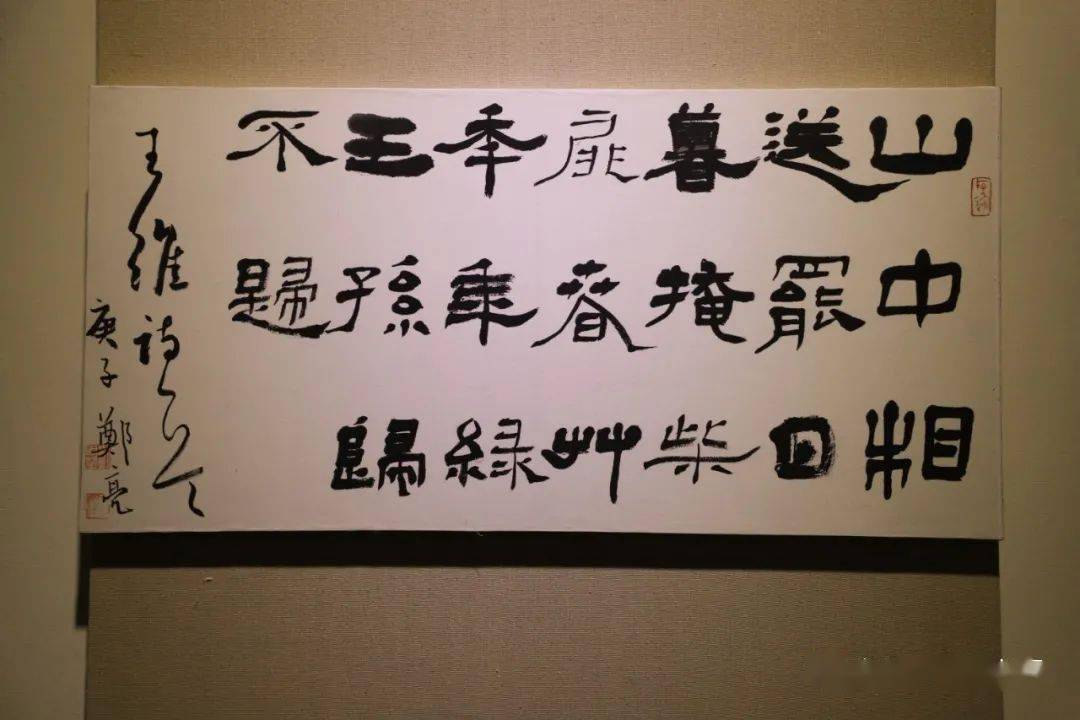 山中相
送罷日
暮掩柴
扉春艸
秊年綠
王孫歸
不歸
王維詩
庚子鄭亮